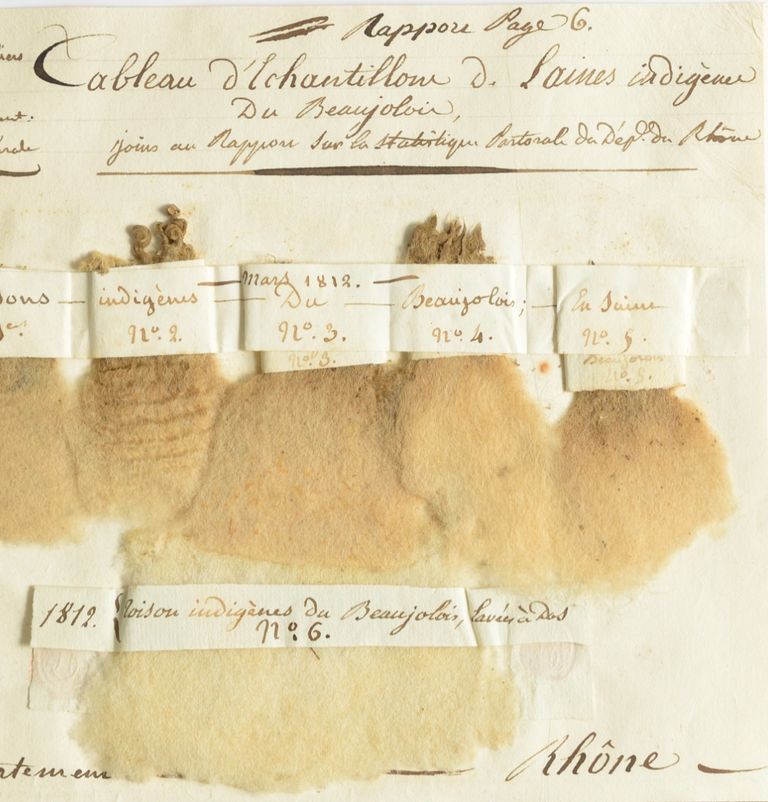 Rapport Page 6.
Tableau d'Echantillons de Laines indigènes
Du Beaujolois,
joins au Rapport Sur la Statistique Pastorale du Dép.t du Rhône
Mars 1812.
indigènes Du Beaujolois; En Suint
N.o 2. N.o 3. N.o 4. N.o 5.
N.o 3. Beaujolois
N.o 5.
1812. Toison indigènes du Beaujolois, lavées à Dos
N.o 6.
Rhône